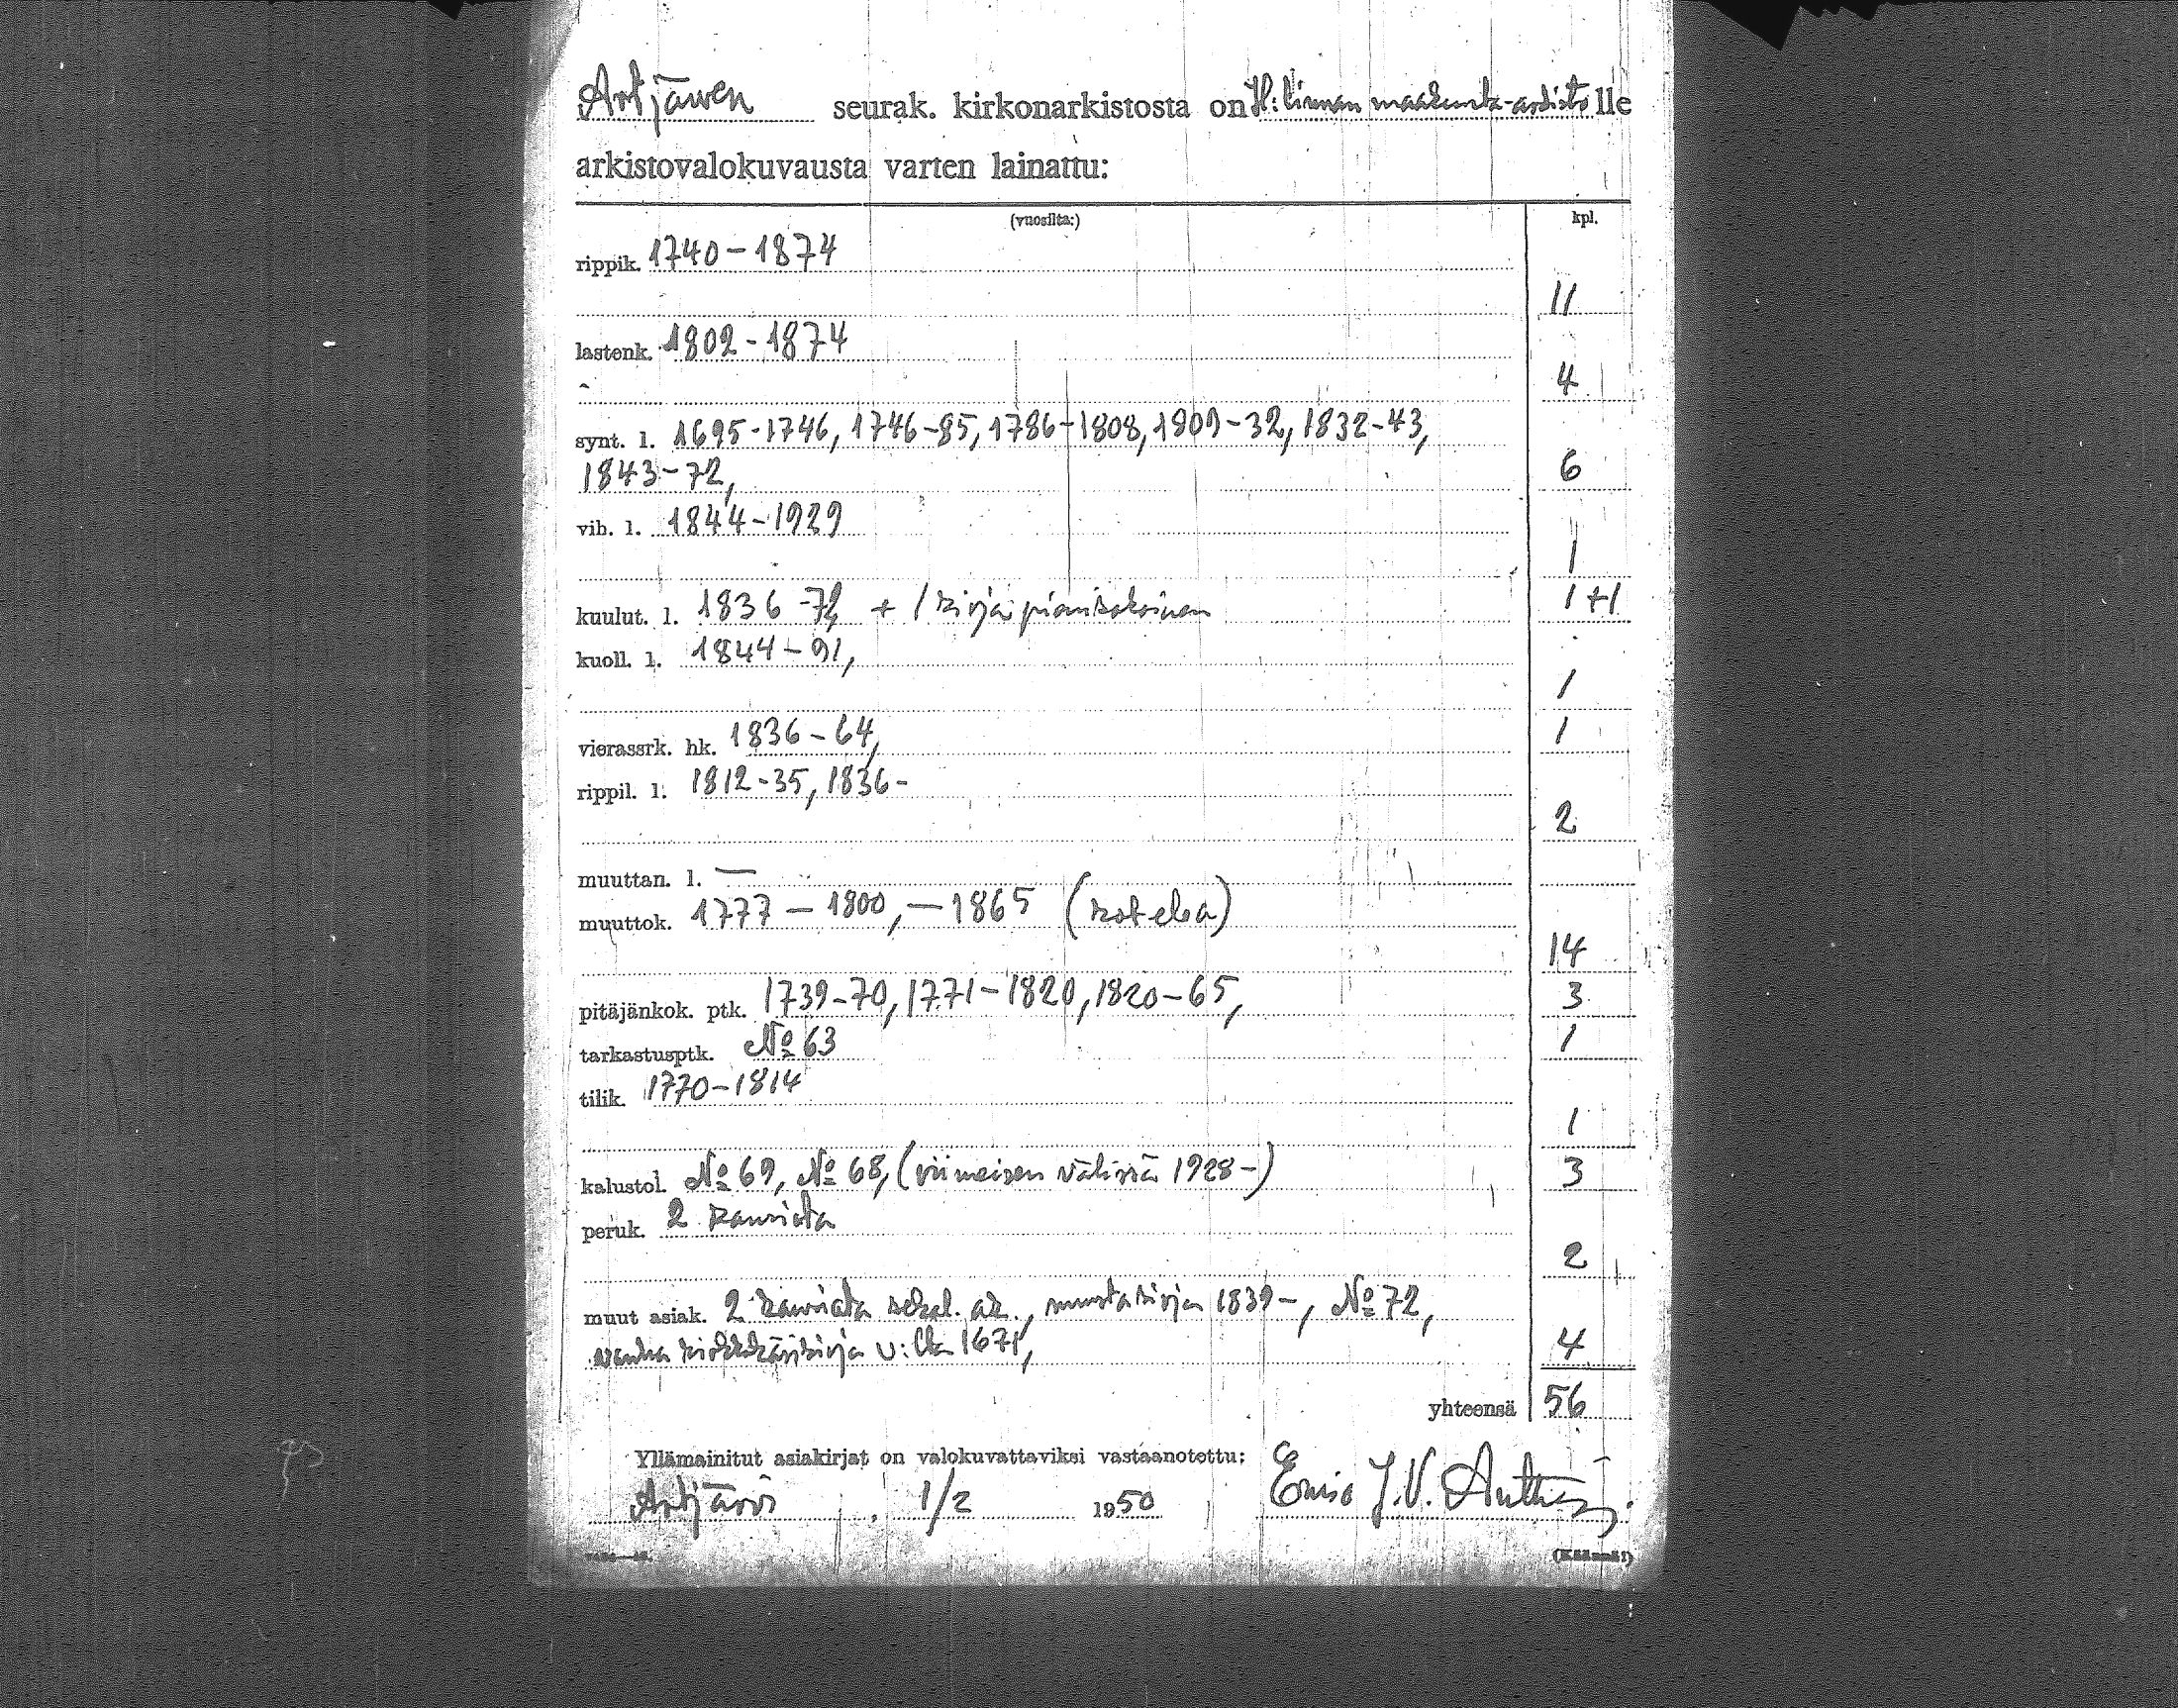 Artjäwen seurak. kirkonarkistosta on H:linnan maakunta-arkistolle
arkistovalokuvausta varten lainattu:
(vuosilta:) kpl.
rippik. 1740-1874
11
lastenk. 1802-1874
4
synt. l. 1695-1746, 1746-85, 1786-1808, 1809-32, 1832-43,
1843-72, 6
vih. l. 1844-1929
1
kuulut. l. 1836-72 + 1 kirja pienikokoinen 1+1
kuoll. l. 1844-91,
1
vierassrk. hk. 1836-64, 1
rippil. l. 1812-35, 1836-
2
muuttan. l. —
muuttok. 1777-1800, -1865 (koteloa)
14
pitäjänkok. ptk. 1739-70, 1771-1820, 1820-65, 3
tarkastusptk. No 63 1
tilik. 1770-1814
1
kalustol. No 69, No 68, (viimeisen välissä 1928-) 3
peruk. 2 kansiota
2
muut asiak. 2 kansiota sekal. as., mustakirja 1839-, No 72,
vanha kirkkokäsikirja v:lta 1671, 4
yhteensä 56
Yllämainitut asiakirjat on valokuvattaviksi vastaanotettu:
Artjärvi, 1/2 1950 J.V.
(Käännä!)